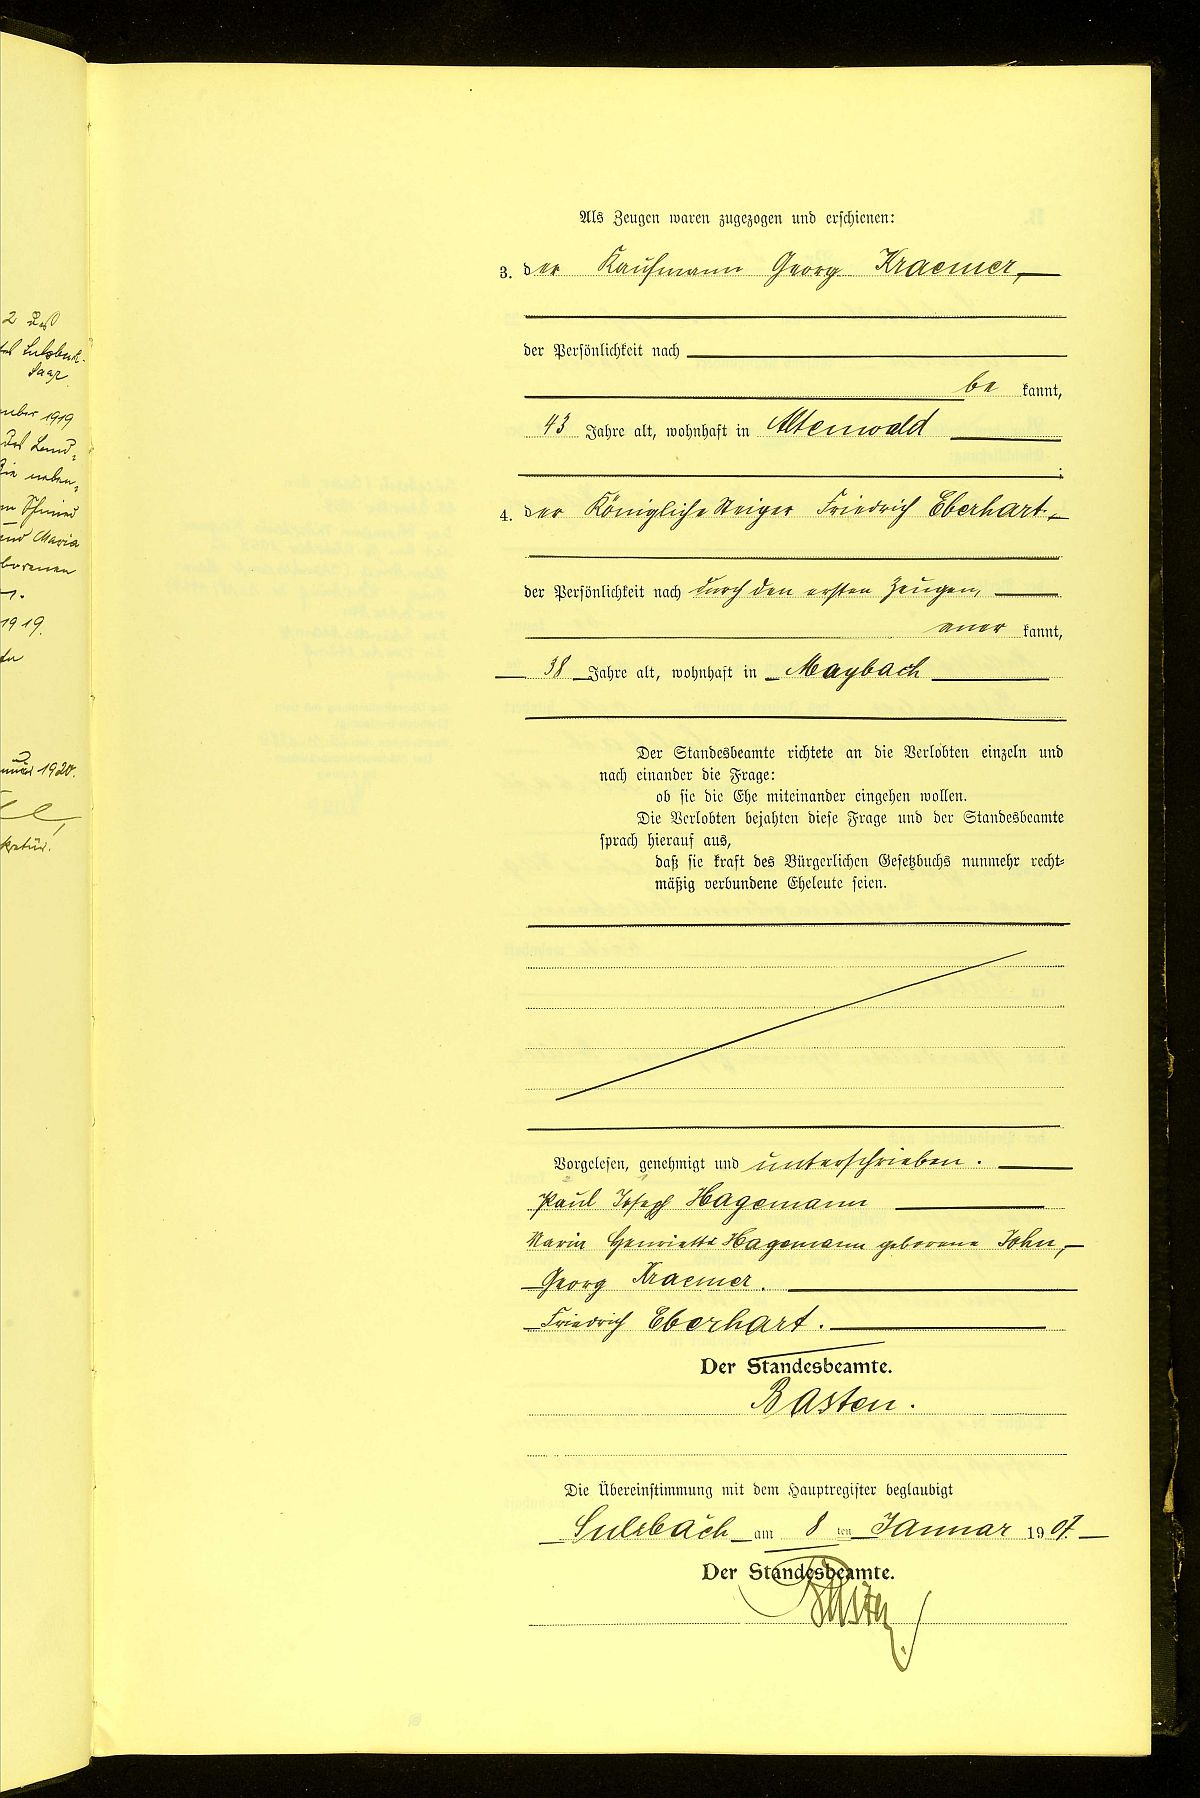 2 des
Sulzbach-
Saar
mber 1919
des Land-
Die neben-
Schmied
und Maria
borenen
1919.
1920.
Als Zeugen waren zugezogen und erschienen:
3. der Kaufmann Georg Kraemer,
der Persönlichkeit nach
be kannt,
43 Jahre alt, wohnhaft in Altenwald
;
4. der Königliche Steiger Friedrich Eberhart,
der Persönlichkeit nach durch den ersten Zeugen,
aner kannt,
38 Jahre alt, wohnhaft in Maybach
Der Standesbeamte richtete an die Verlobten einzeln und
nach einander die Frage:
ob sie die Ehe miteinander eingehen wollen.
Die Verlobten bejahten diese Frage und der Standesbeamte
sprach hierauf aus,
daß sie kraft des Bürgerlichen Gesetzbuchs nunmehr recht-
mäßig verbundene Eheleute seien.
Vorgelesen, genehmigt und unterschrieben.
Paul Josef Hagemann
Maria Henriette Hagemann geborene John,
Georg Kraemer.
Friedrich Eberhart.
Der Standesbeamte.
Basten.
Die Übereinstimmung mit dem Hauptregister beglaubigt
Sulzbach am 8 ten Januar 1907.
Der Standesbeamte.
Basten.